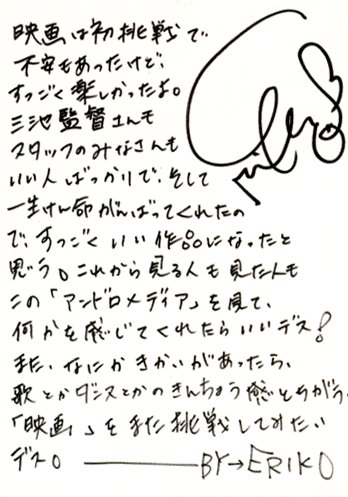 映画は初挑戦で
不安もあったけど、
すっごく楽しかったよ。
三池監督さんも
スタッフのみなさんも
いい人ばっかりで、そして
一生けん命がんばってくれたの
で、すっごくいい作品になったと
思う。これから見る人も見た人も
この「アンドロメディア」を見て、
何かを感じてくれたらいいデス!
また、なにかきかいがあったら、
歌とかダンスとかのきんちょう感とちがう。
「映画」をまた挑戦してみたい
デス。――BY→ERIKO